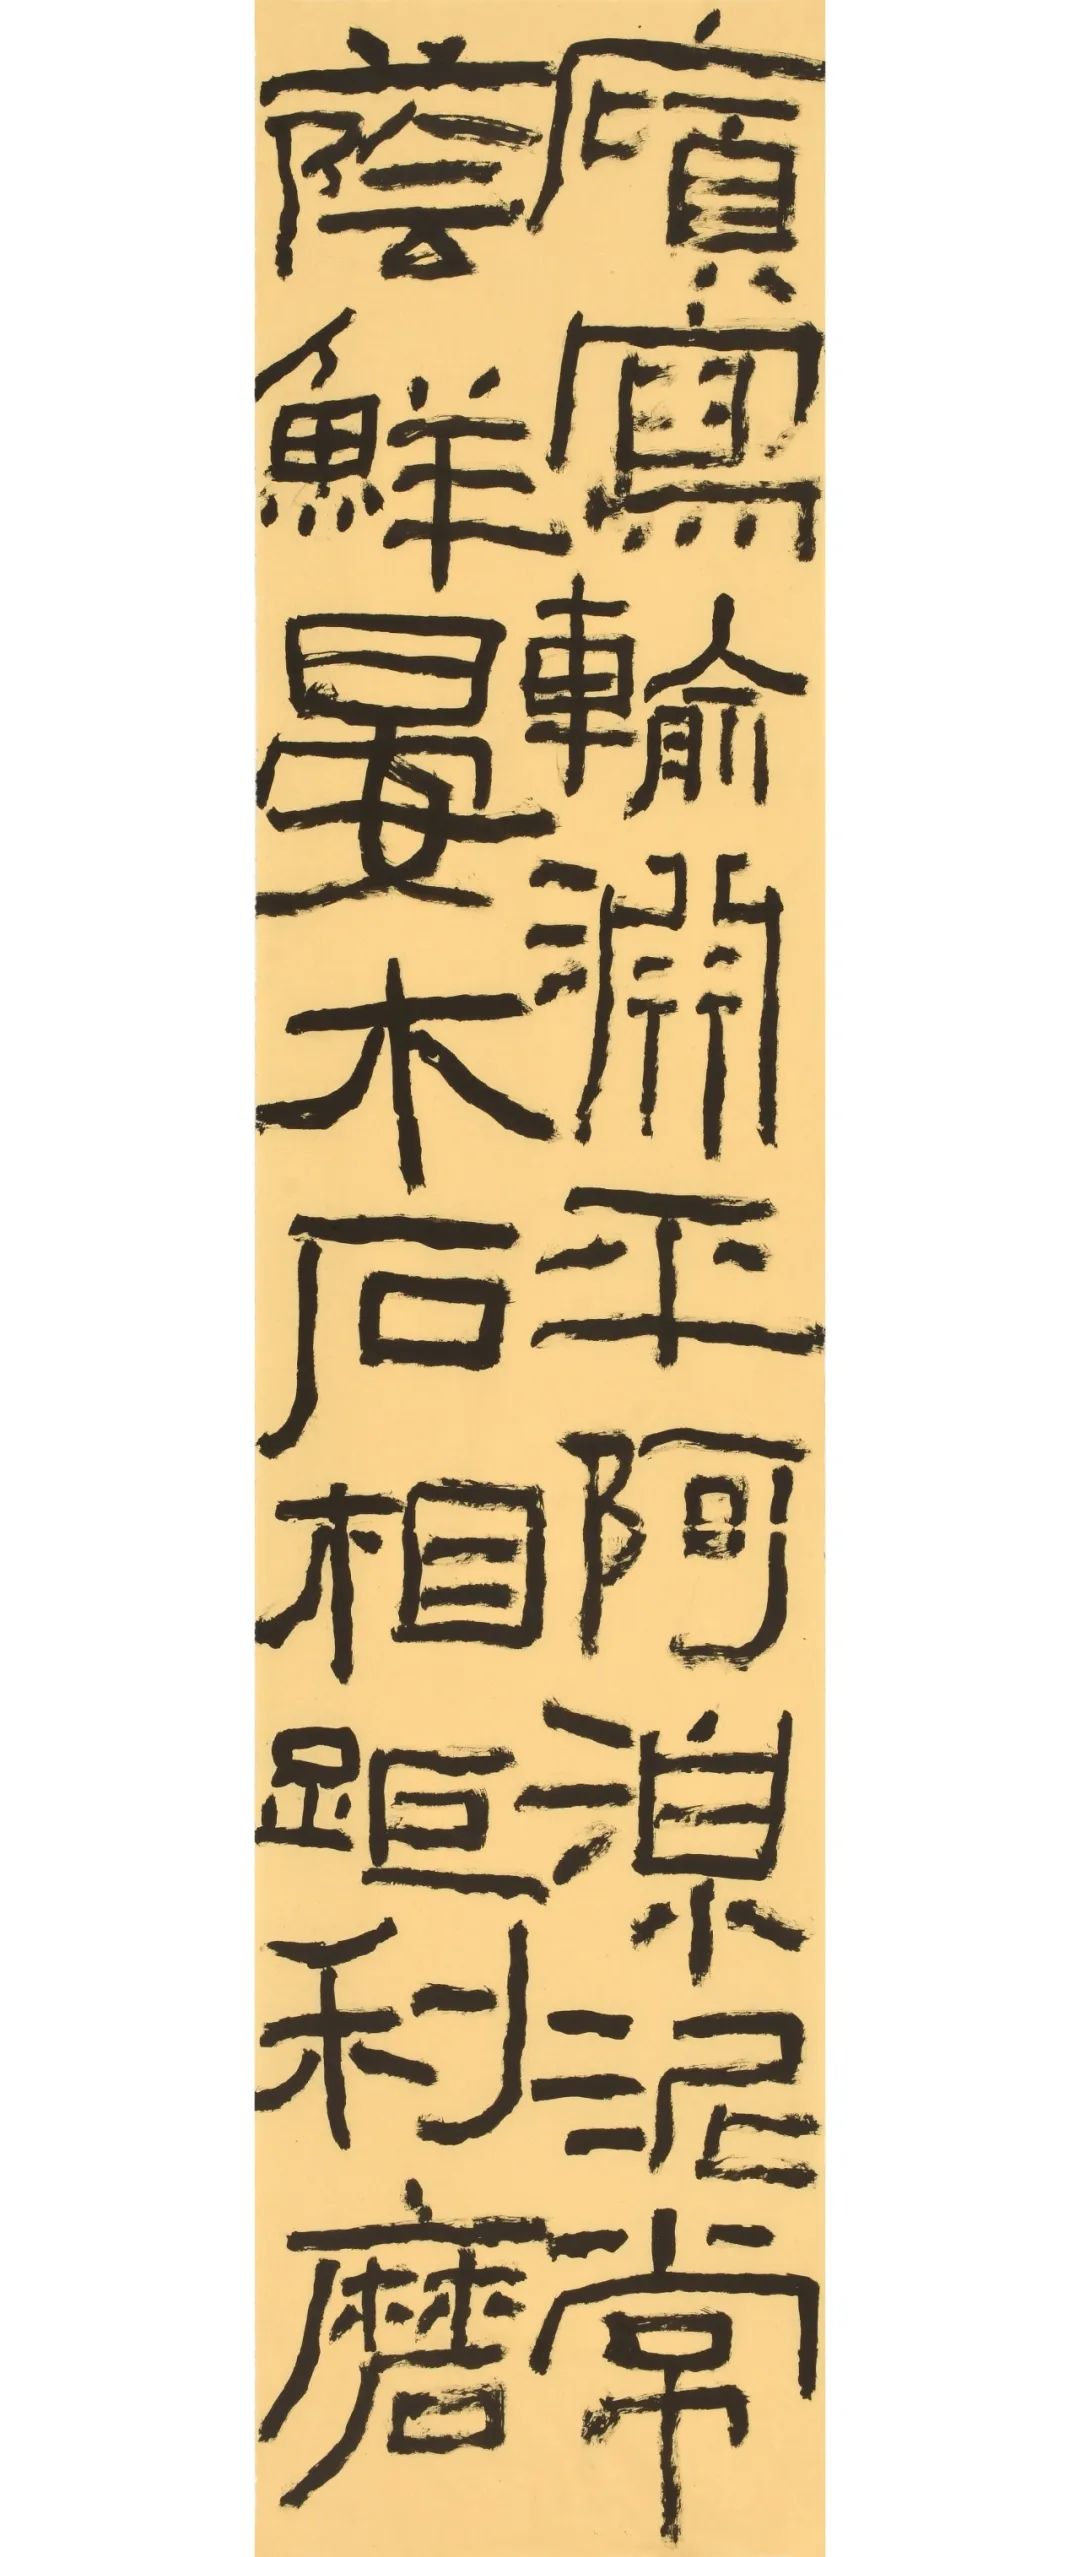 廎寫輸淵平阿湶泥常
蔭鮮晏木石相距利磨